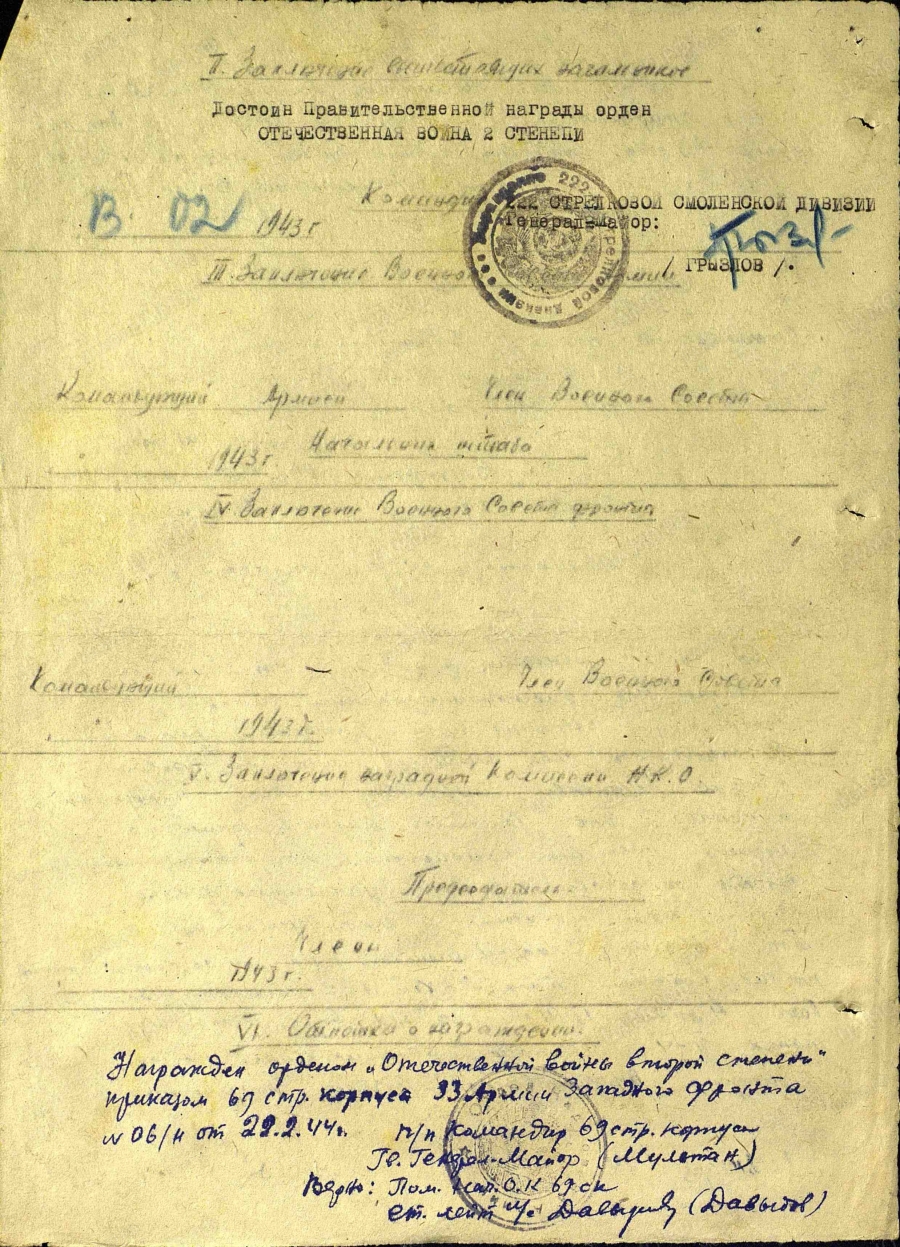 II. Заключение вышестоящих начальников
Достоин Правительственной награды орден
ОТЕЧЕСТВЕННАЯ ВОЙНА 2 СТЕПЕПИ
Командир 222 СТРЕЛКОВОЙ СМОЛЕНСКОЙ ДИВИЗИИ
02 1943 г
Генерал-Майор:
/ ГРЫЗЛОВ /.
III. Заключение Военного Армии
Командующий Армией Член Военного Совета
1943 г. Начальник штаба
IV. Заключение Военного Совета фронта
Командующий Член Военного Совета
1943 г.
V. Заключение наградной Комиссии Н.К.О.
Председатель
Члены
1943 г.
VI. Отметка о награждении.
Награжден орденом "Отечественной войны второй степени"
приказом 69 стр. корпуса 33 Армии Западного фронта
N 06/н от 22.2.44г. п/п Командир 69 стр. корпуса
Гв. Генерал-Майор (Мультан)
Верно: Пом. нач. О.К 69 ск
ст. лейт. (Давыдов)